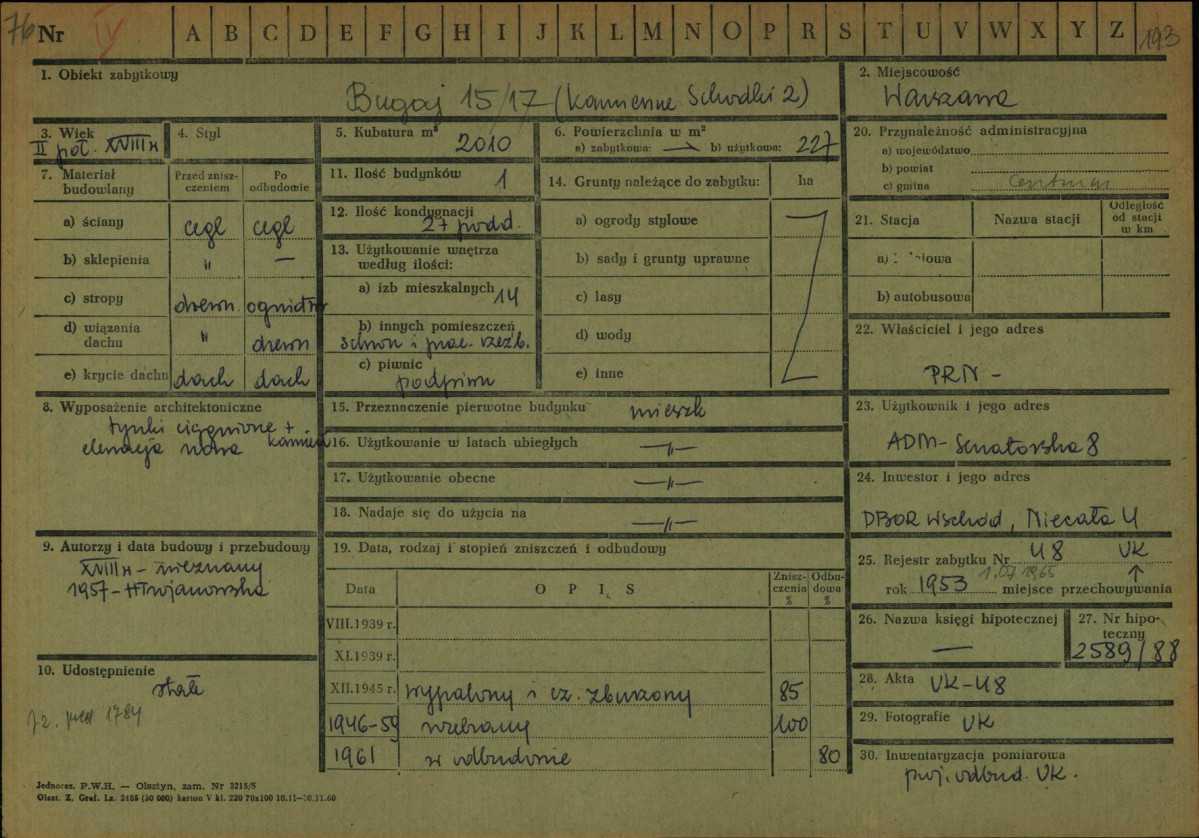 76 Nr IV A B C D E F G H I J K L M N O P R S T U V W X Y Z 193
1. Obiekt zabytkowy
Bugaj 15/17 (Kamienne Schodki 2)
2. Miejscowość
Warszawa
3. Wiek
II poł. XVIII w
4. Styl
5. Kubatura m³
2010
6. Powierzchnia w m²
a) zabytkowa: — b) użytkowa: 227
20. Przynależność administracyjna
a) województwo
b) powiat
c) gmina Centrum
7. Materiał budowlany
Przed zniszczeniem
Po odbudowie
a) ściany cegl cegl
b) sklepienia " —
c) stropy drewn. ogniotrw
d) wiązania dachu " drewn
e) krycie dachu dach dach
11. Ilość budynków 1
12. Ilość kondygnacji
2 + podd.
13. Użytkowanie wnętrza według ilości:
a) izb mieszkalnych 14
b) innych pomieszczeń
schron i prac. rzeźb.
c) piwnic
podpiwn
14. Grunty należące do zabytku: ha
a) ogrody stylowe
b) sady i grunty uprawne
c) lasy
d) wody
e) inne
21. Stacja Nazwa stacji Odległość od stacji w km
b) autobusowa
22. Właściciel i jego adres
PRN -
8. Wyposażenie architektoniczne
tynki ciągnione +
kamień
15. Przeznaczenie pierwotne budynku mieszk
16. Użytkowanie w latach ubiegłych —"—
17. Użytkowanie obecne —"—
18. Nadaje się do użycia na —"—
23. Użytkownik i jego adres
ADM - Senatorska 8
24. Inwestor i jego adres
DBOR Wschód, Niecała 4
9. Autorzy i data budowy i przebudowy
XVIII w - nieznany
1957 - H Trojanowska
19. Data, rodzaj i stopień zniszczeń i odbudowy
Data O P I S Zniszczenia % Odbudowa %
VIII.1939 r.
XI.1939 r.
XII.1945 r. wypalony i cz. zburzony 85
1946-59 rozebrany 100
1961 w odbudowie 80
25. Rejestr zabytku Nr 48 UK
1.07.1965
rok 1953 miejsce przechowywania
26. Nazwa księgi hipotecznej
—
27. Nr hipoteczny
2589/88
10. Udostępnienie
stałe
prd 1784
28. Akta UK-48
29. Fotografie UK
30. Inwentaryzacja pomiarowa
proj. odbud. UK.
Jednoraz. P.W.H. — Olsztyn, zam. Nr 3213/S
Olszt. Z. Graf. Lz. 2485 (30 000) karton V kl. 220 70x100 10.11—30.11.60